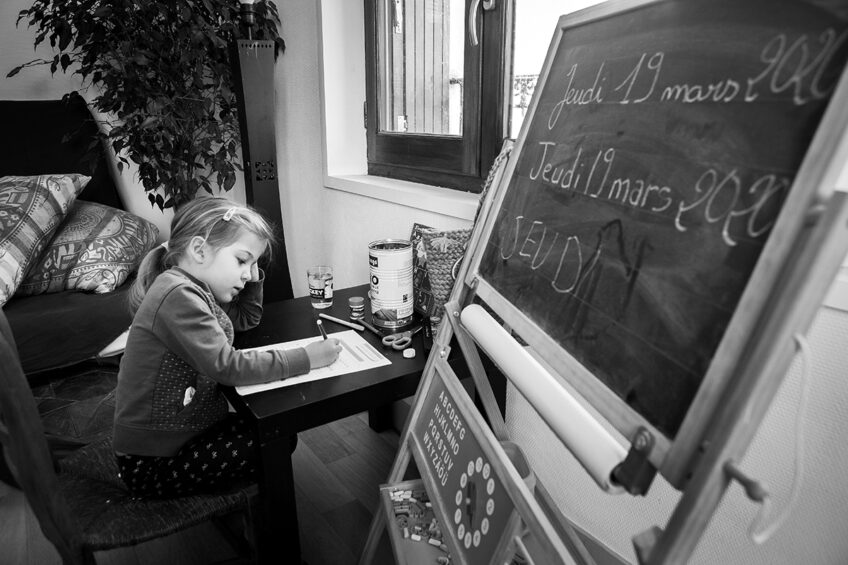 Jeudi 19 mars 2020
Jeudi 19 mars 2020
JEUDI
ABCDEFG
HIJKLMNO
PQRSTUV
WXYZÅÄÖ